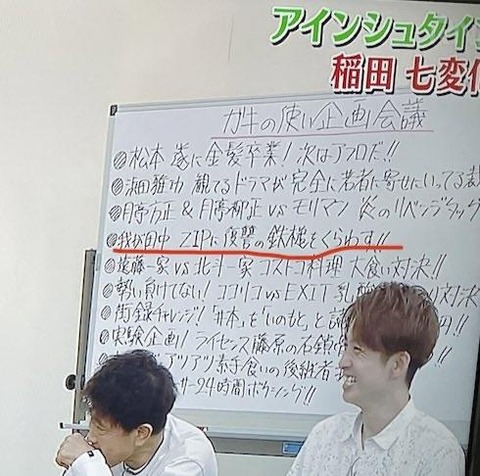 アインシュタイン
稲田 七変化
ガキの使い企画会議
松本 遂に金髪卒業! 次はアフロだ!!
浜田雅功 観てるドラマが完全に若者に寄せにいってる
月亭方正 & 月亭柳正 vs モリマン 炎のリベンジマッチ
我が田中 ZIPに復讐の鉄槌をくらわす!!
遠藤一家 vs 北斗一家 コストコ料理 大食い対決!!
勢い負けてない! ココリコ vs EXIT 乳酸 対決
街録チャレンジ! 「井本」を「いのもと」と 円!!
実験企画! ライセンス藤原の右鎖
アツアツ素手食いの後継者
24時間ボウシング!!